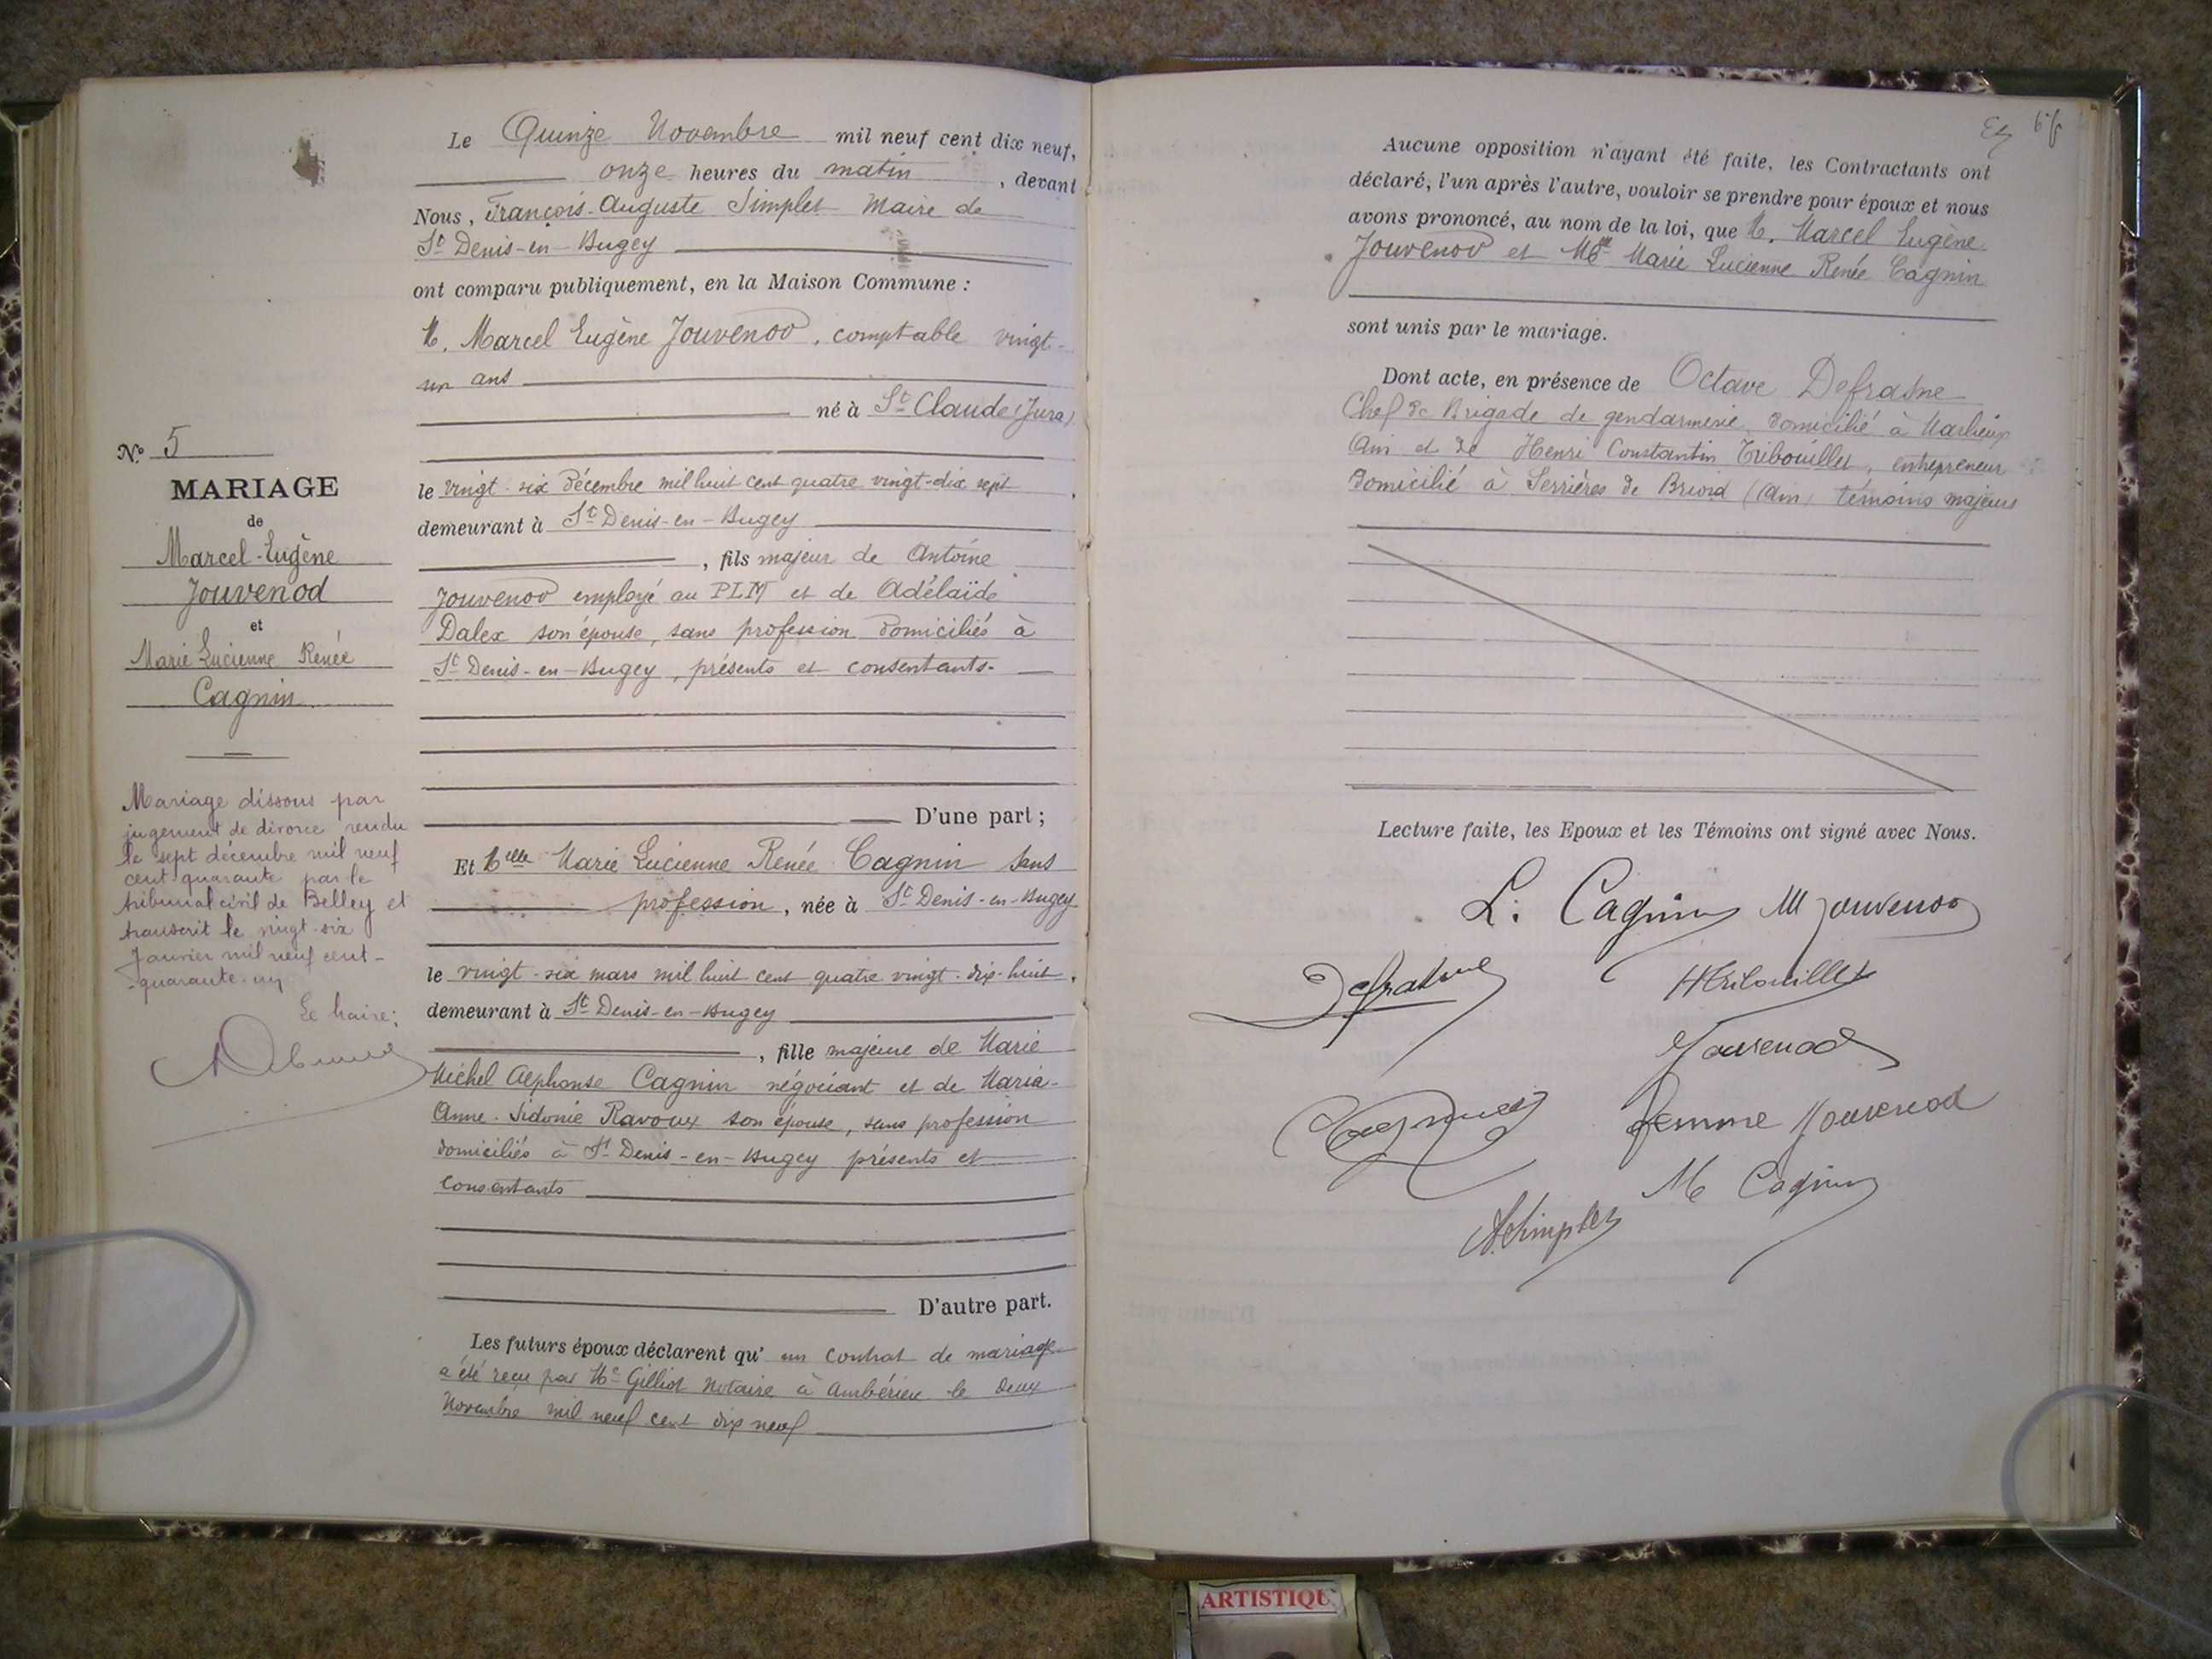 Le Quinze Novembre mil neuf cent dix neuf,
onze heures du matin, devant
Nous, François-Auguste Simplet Maire de
St Denis-en-Bugey
ont comparu publiquement, en la Maison Commune :
M. Marcel Eugène Jouvenod, comptable vingt-
un ans
né à St Claude (Jura)
le vingt-six décembre mil huit cent quatre vingt-dix sept
demeurant à St Denis-en-Bugey
, fils majeur de Antoine
Jouvenod employé au PLM et de Adélaïde
Dalex son épouse, sans profession domiciliés à
St Denis-en-Bugey, présents et consentants-
D'une part ;
Et Melle Marie Lucienne Renée Cagnin sans
profession, née à St Denis-en-Bugey
le vingt-six mars mil huit cent quatre vingt-dix-huit,
demeurant à St Denis-en-Bugey
, fille majeure de Marie
Michel Alphonse Cagnin négociant et de Maria-
Anne-Sidonie Ravoux son épouse, sans profession
domiciliés à St Denis-en-Bugey présents et
consentants
D'autre part.
Les futurs époux déclarent qu' un contrat de mariage
a été reçu par Me Gilliot Notaire à Ambérieu le deux
Novembre mil neuf cent dix neuf
N° 5
MARIAGE
de
Marcel-Eugène
Jouvenod
et
Marie Lucienne Renée
Cagnin
Mariage dissous par
jugement de divorce rendu
le sept décembre mil neuf
cent quarante par le
tribunal civil de Belley et
transcrit le vingt-six
Janvier mil neuf cent-
quarante-un
Le Maire :
Aucune opposition n'ayant été faite, les Contractants ont
déclaré, l'un après l'autre, vouloir se prendre pour époux et nous
avons prononcé, au nom de la loi, que M. Marcel Eugène
Jouvenod et Mlle Marie Lucienne Renée Cagnin
sont unis par le mariage.
Dont acte, en présence de Octave Defrasne
Chef de Brigade de gendarmerie domicilié à Marlieux
Ain et de Henri Constantin Tribouillet, entrepreneur
domicilié à Serrières de Briord (Ain) témoins majeurs
Lecture faite, les Epoux et les Témoins ont signé avec Nous.
L. Cagnin M Jouvenod
Defrasne
H Tribouillet
Jouvenod
Femme Jouvenod
M Cagnin
A. Simplet
ARTISTIQU